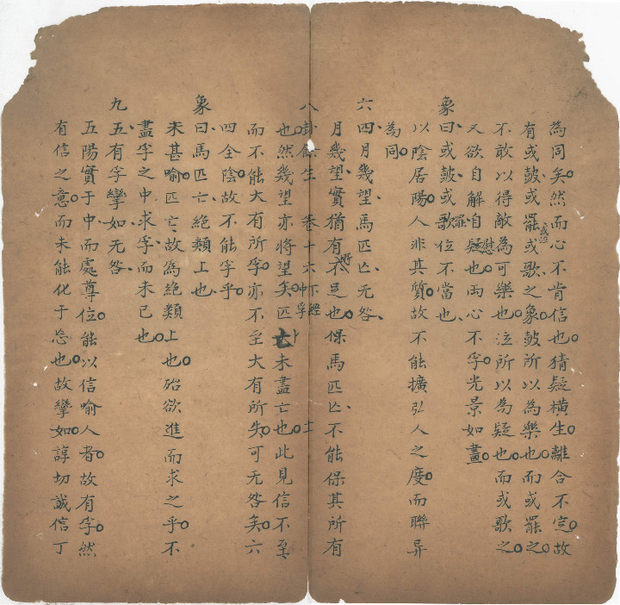 為同矣然而心不肯信也猜疑橫生離合不定故
有或鼓或罷或泣或歌之象鼓所以為樂也而或罷之
不敢以得敵為可樂也泣所以為疑也而或歌之
又欲自解自慰也兩心不孚光景如畫
象曰或鼓或罷位不當也
以陰居陽人非其質故不能擴弘人之度而聯異
為同
六四月幾望馬匹亡无咎
月幾望實猶有不足也保馬匹亡不能保其所有
八卦餘生 卷十六 下經 中孚 十二
也然幾望亦將望矣匹亡未盡亡也此見信不至
而不能大有所孚亦不至大有所失可无咎矣六
四全陰故不能孚乎
象曰馬匹亡絕類上也
未甚喻匹亡故為絕類上也殆欲進而求之乎不
盡孚之中求孚而未已也
九五有孚攣如无咎
五陽實于中而處尊位能以信喻人者故有孚然
有信之意而未能化于忘也故攣如諄切誠信丁